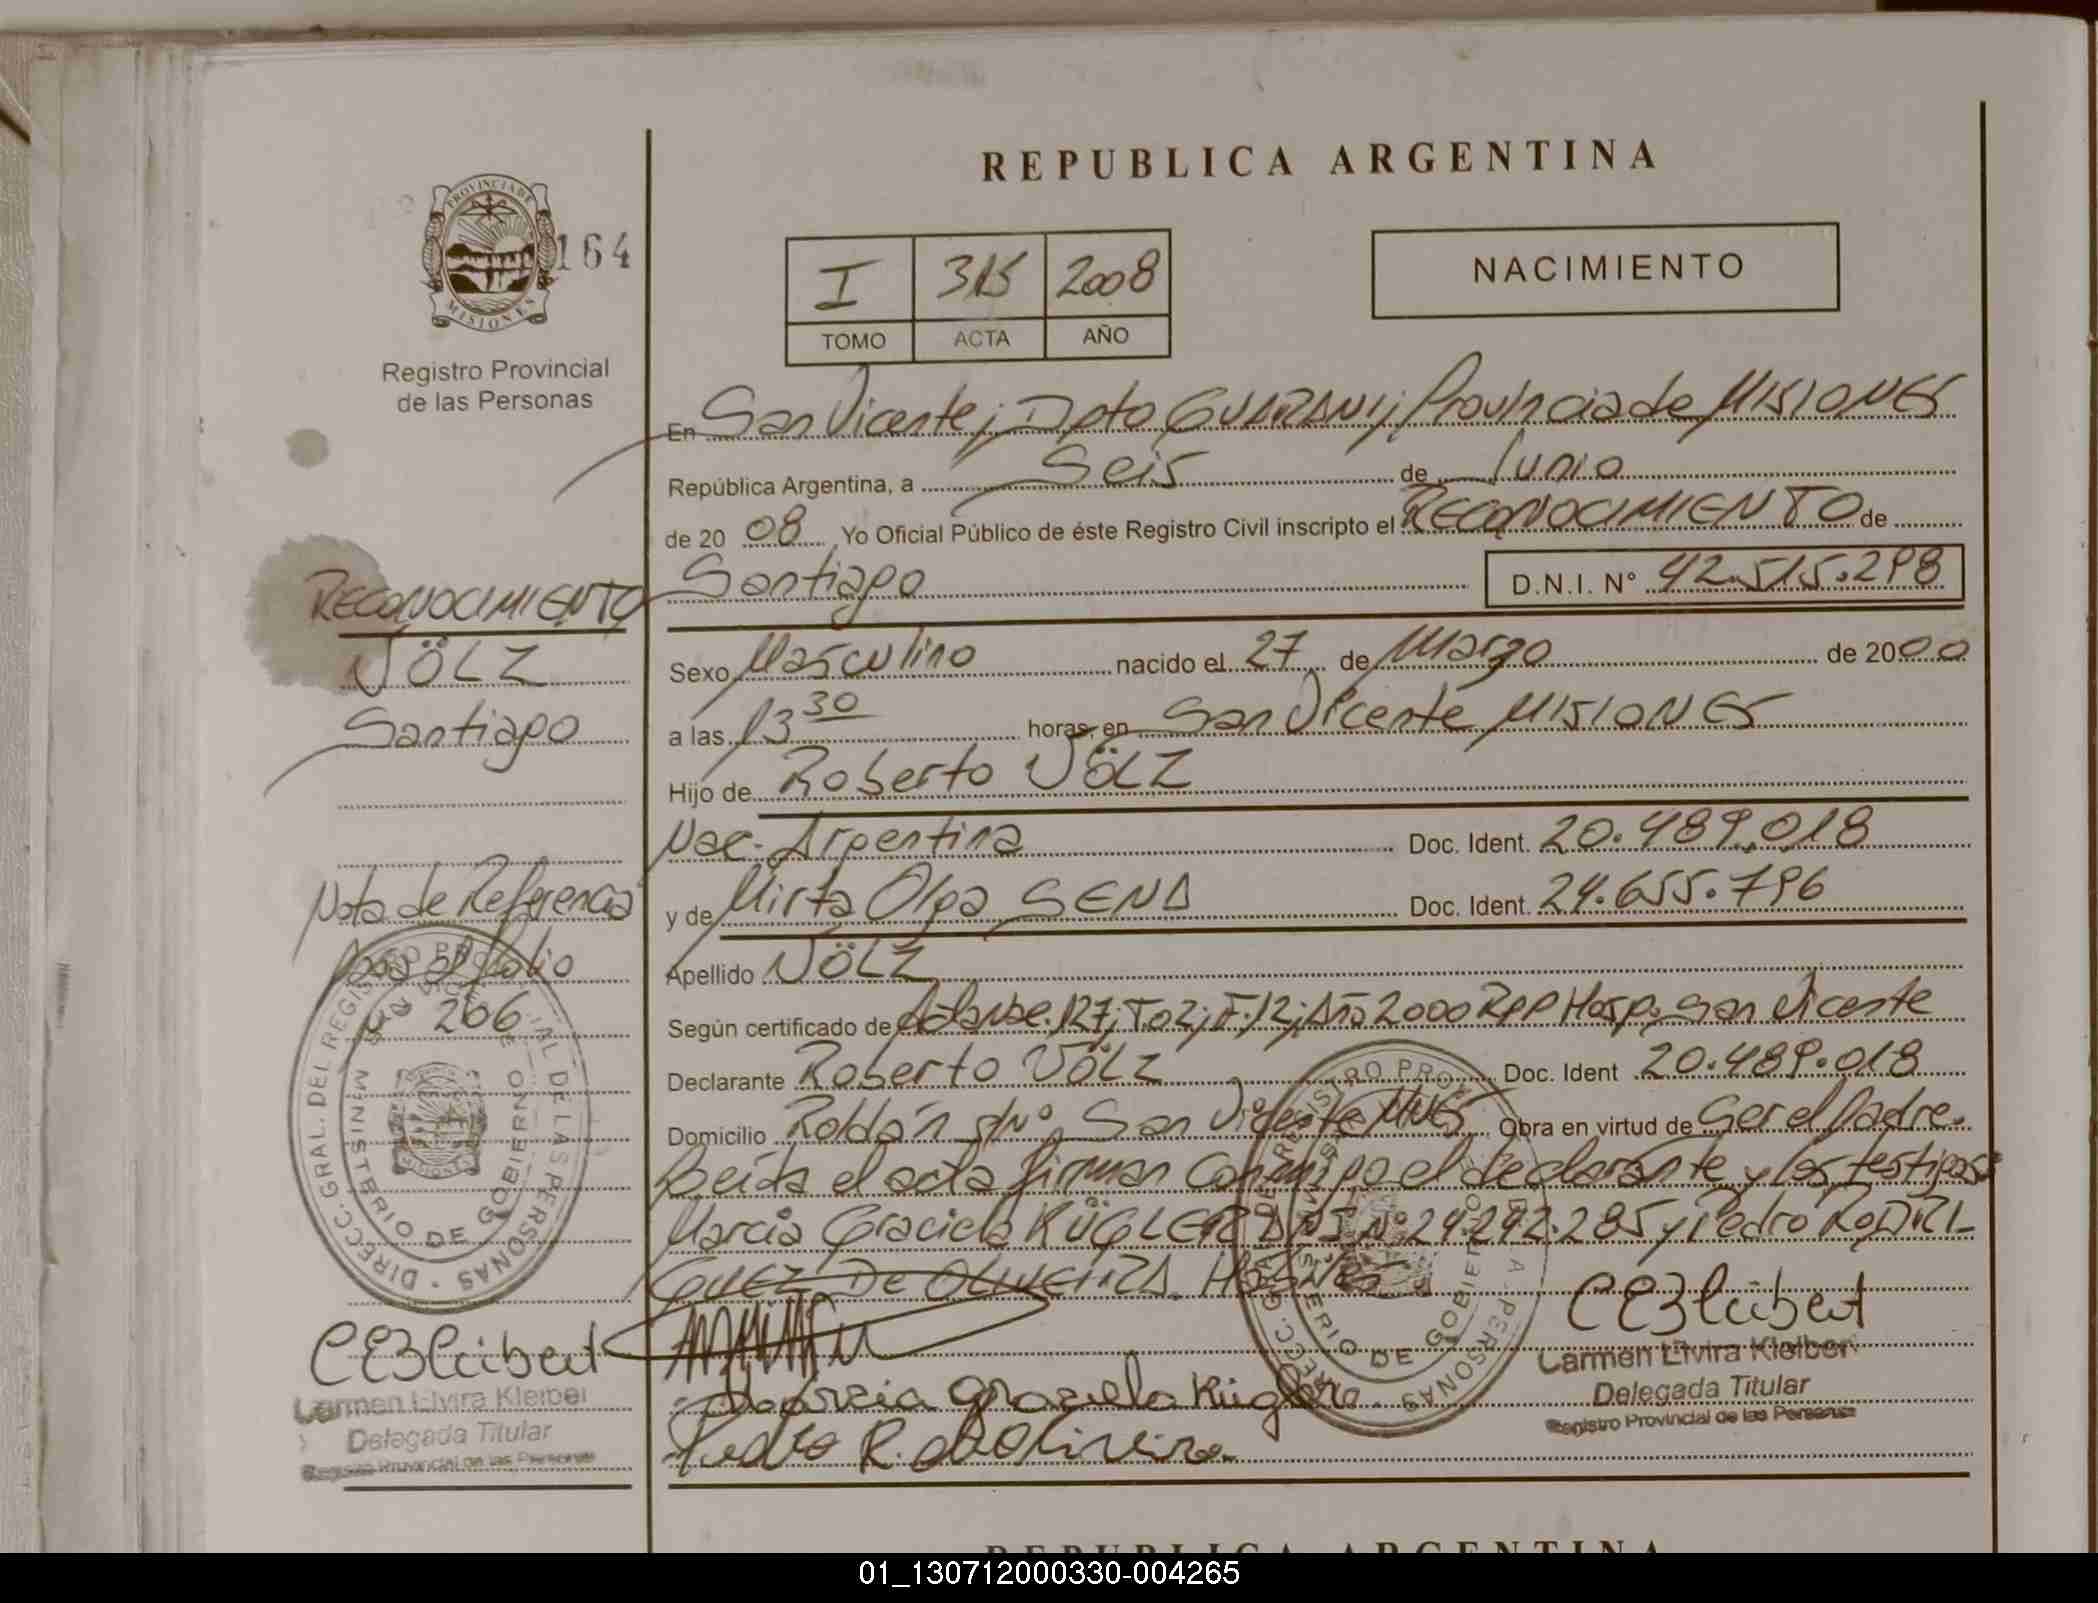 REPUBLICA ARGENTINA
PROVINCIA DE
MISIONES
164
Registro Provincial
de las Personas
I 315 2008
TOMO ACTA AÑO
NACIMIENTO
En San Vicente; Dpto GUARANI; Provincia de MISIONES
República Argentina, a Seis de Junio
de 2008 Yo Oficial Público de éste Registro Civil inscripto el RECONOCIMIENTO de
Santiago D.N.I. N° 42.515.298
Sexo Masculino nacido el 27 de Marzo de 2000
a las 13 30 horas, en San Vicente MISIONES
Hijo de Roberto VÖLZ
Nac. Argentina Doc. Ident. 20.489.018
y de Mirta Olga SENA Doc. Ident. 24.655.796
Apellido VÖLZ
Según certificado de Acta Nac. 127; T.02; F.12; Año 2000 RPP Hosp. San Vicente
Declarante Roberto VÖLZ Doc. Ident 20.489.018
Domicilio Roldán s/N° San Vicente MNES Obra en virtud de Ser el Padre.
Leída el acta firman conmigo el declarante y los testigos
Marcia Graciela KÜGLER DNI N° 24.292.285 y Pedro RODRI
GUEZ DE OLIVEIRA.
Marcia Graciela Kügler
Pedro R. de Oliveira
Carmen Elvira Kleiber
Delegada Titular
Registro Provincial de las Personas
RECONOCIMIENTO
VÖLZ
Santiago
Nota de Referencia
Pasa al folio
N° 266
DIRECC. GRAL. DEL REGISTRO PROVINCIAL DE LAS PERSONAS
MINISTERIO DE GOBIERNO
SAN VICENTE
MISIONES
Carmen Elvira Kleiber
Delegada Titular
Registro Provincial de las Personas
REPUBLICA ARGENTINA
01_130712000330-004265